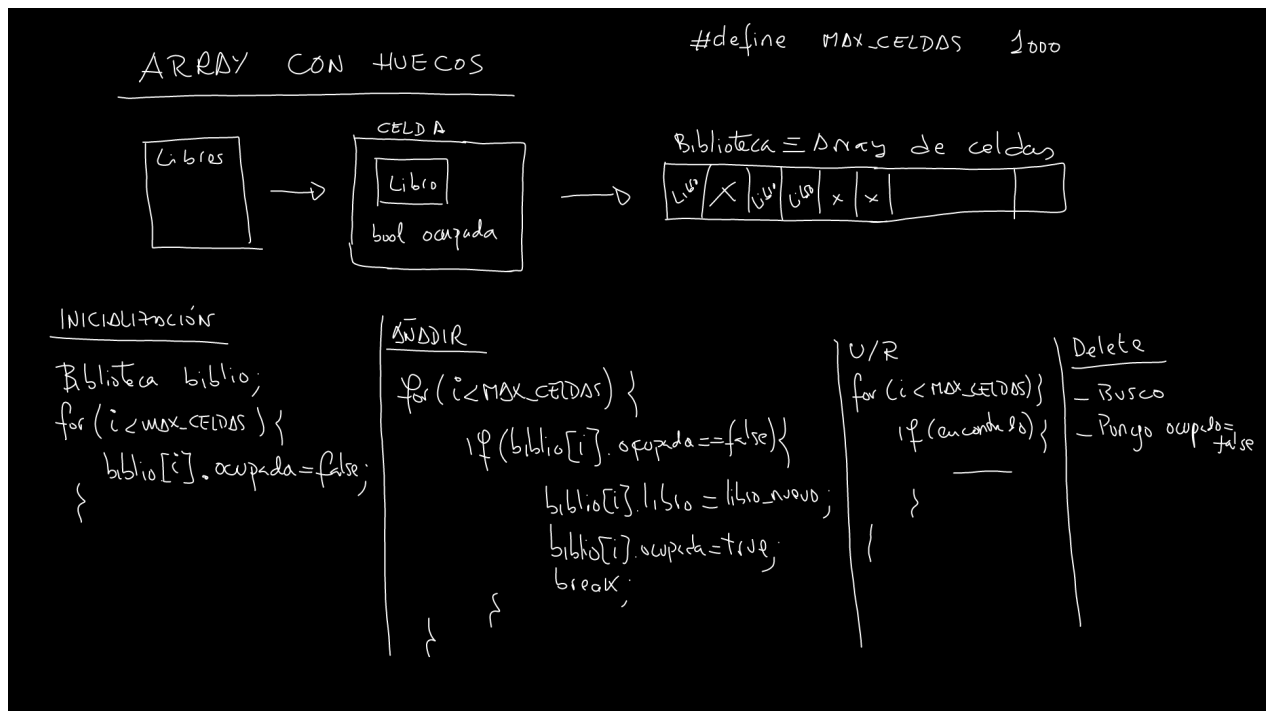 #define MAX_CELDAS 1000
ARRAY CON HUECOS
Libros
CELDA
Libro
bool ocupada
Biblioteca ≡ Array de celdas
Libro X Libro Libro x x
INICIALIZACIÓN
Biblioteca biblio;
for (i < MAX_CELDAS) {
biblio[i].ocupada = false;
}
AÑADIR
for (i < MAX_CELDAS) {
if (biblio[i].ocupada == false) {
biblio[i].libro = libro_nuevo;
biblio[i].ocupada = true;
break;
}
}
U/R
for (i < MAX_CELDAS) {
if (encontrado) {
}
}
Delete
- Busco
- Pongo ocupado=
false